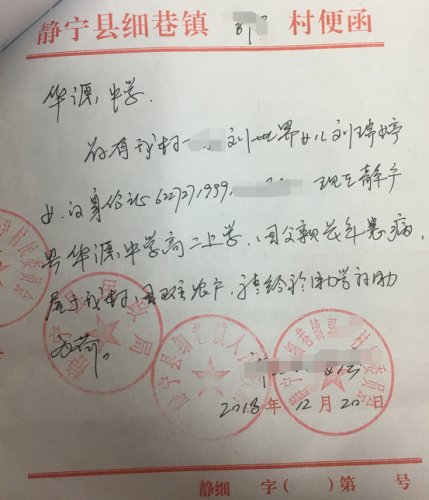 静宁县细巷镇 村便函
华源中学.
兹有我村 刘世军女儿刘瑞婷
女,身份证6227271999 现在静宁
县华源中学高二上学,因父亲长年患病,
属于我村困难农户,请给于助学补助
为荷。
静宁县细巷镇人
村民委员会
2018年12月20日
静细 字( )第 号